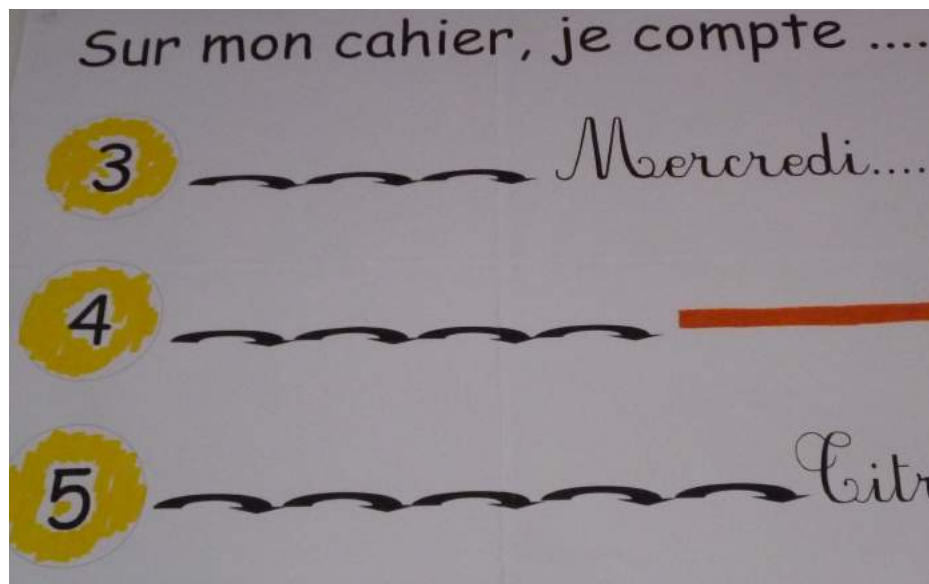 Sur mon cahier, je compte ....
3 Mercredi....
4
5